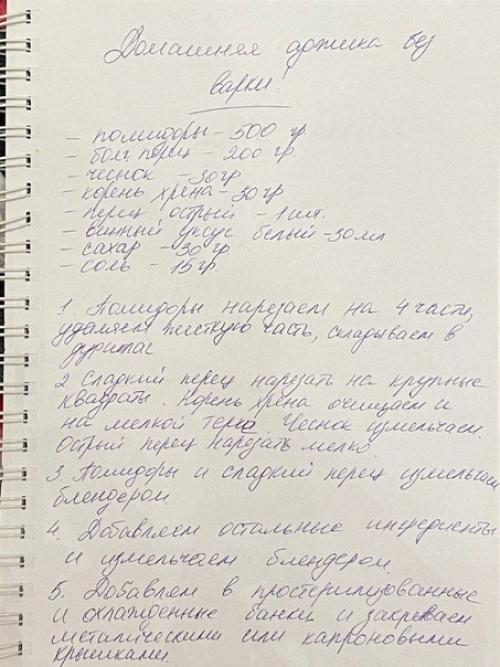 Домашняя аджика без
варки!
- помидоры - 500 гр.
- болг перец - 200 гр.
- чеснок - 30 гр.
- корень хрена - 30 гр
- перец острый - 1 шт.
- винный уксус белый - 30 мл
- сахар - 30 гр.
- соль - 15 гр.
1. Помидоры нарезаем на 4 части,
удаляем жесткую часть, складываем в
2. Сладкий перец нарезать на крупные
квадраты. Корень хрена очищаем и
на мелкой терка. Чеснок измельчаем.
Острый перец нарезать мелко.
3. Помидоры и сладкий перец измельчаем
блендером.
4. Добавляем остальные ингредиенты
и измельчаем блендером.
5. Добавлем в простерилизованные
и охлажденные банки и закрываем
металическими или капроновыми
крышками.